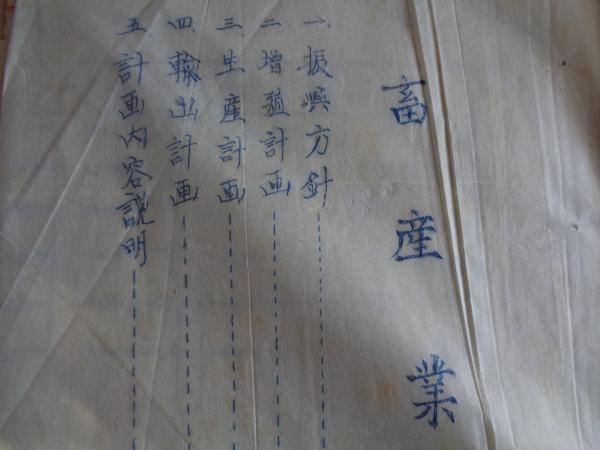 畜産業
一、振興方針
二、増殖計画
三、生産計画
四、輸出計画
五、計画内容説明